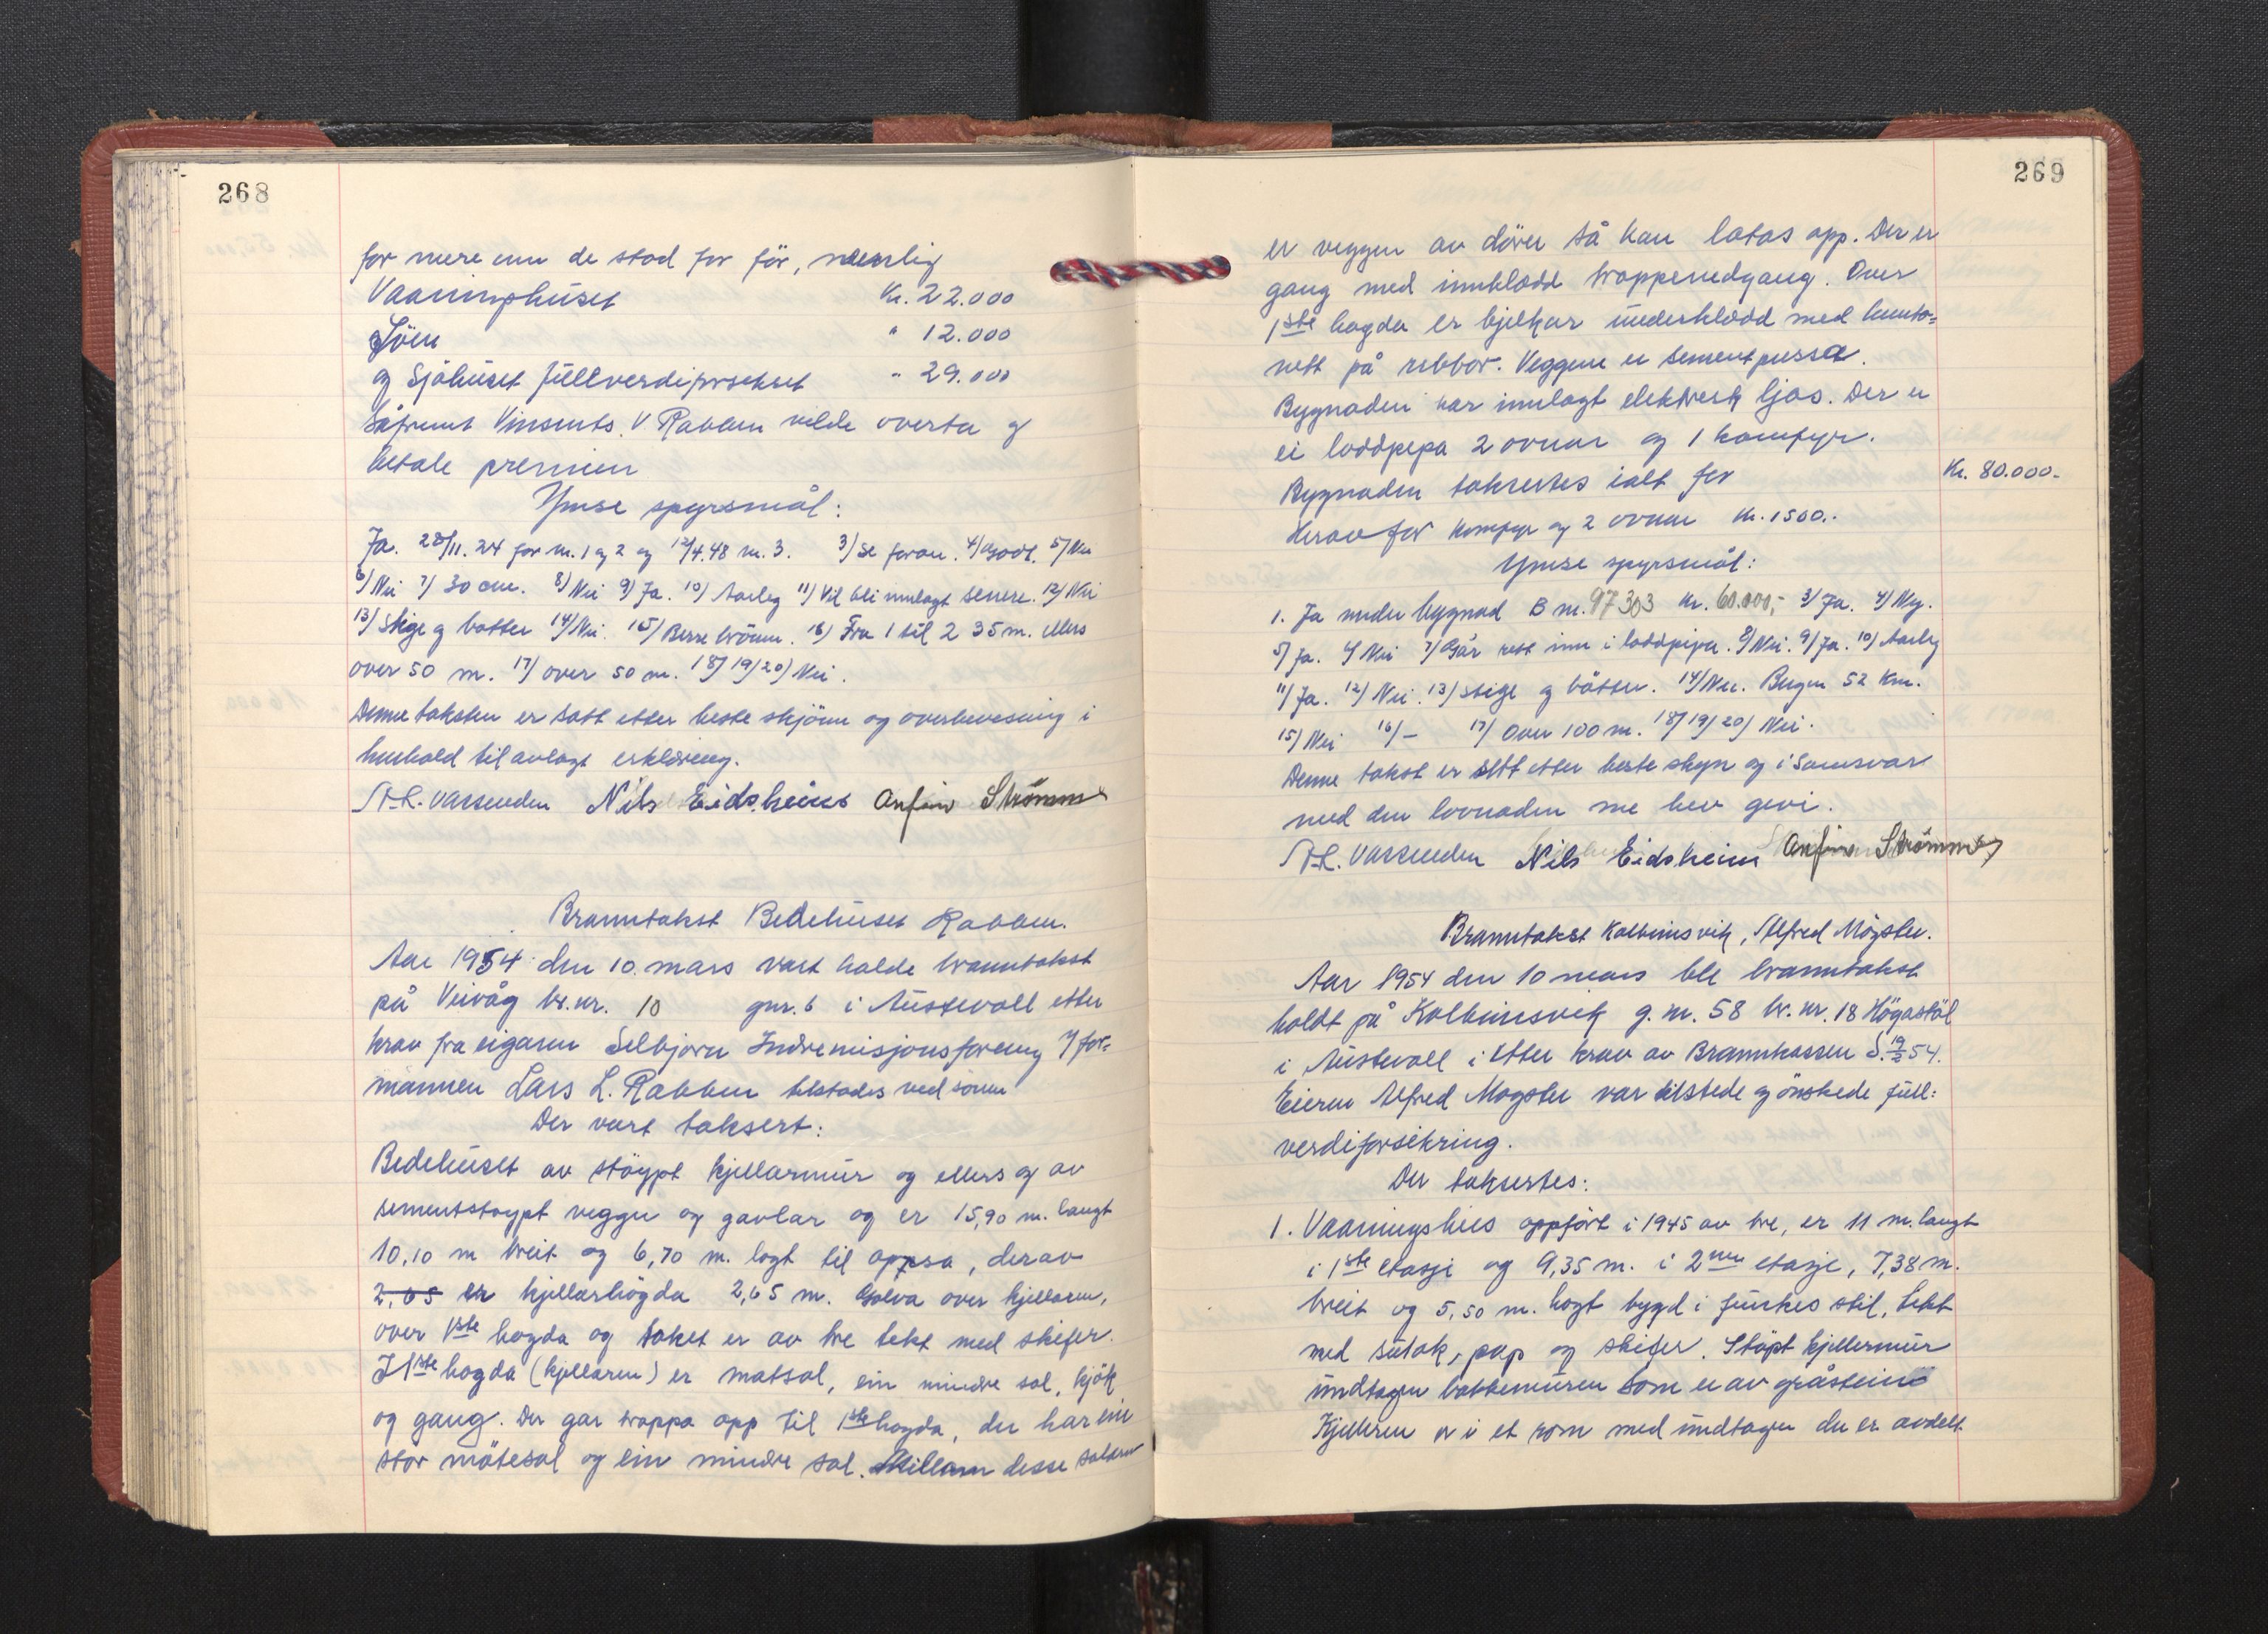 268
for mere enn de stod for för, nemlig
Vaaninghuset Kr. 22.000
Löen " 12.000
og Sjöhuset fullverdiforsekret " 29.000
såfremt Vinsents V Rabben vilde overta og
betale premien
Ymse spyrsmål:
Ja. 28/11.24 for m. 1 og 2 og 12/4.48 m. 3. 3/ se foran. 4/ Godt. 5/ Nei
6/ Nei 7/ 30 cm. 8/ Nei 9/ Ja. 10/ Aarleg 11/ Vil bli innlagt senere. 12/ Nei
13/ Stige og botter 14/ Nei. 15/ Berre brönn. 16/ Fra 1 til 2 35 m. ellers
over 50 m. 17/ over 50 m. 18/19/20/ Nei.
Denne taksten er satt etter beste skjönn og overbevisning i
henhold til avlagt erklæring.
A.L. Vassenden Nils Eidsheim Anfin Strømme
Branntakst Bedehuset Rabben.
Aar 1954 den 10. mars vart halde branntakst
på Veivåg br.nr. 10 gnr. 6 i Austevoll etter
krav fra eigaren Selbjorn Indremisjonsforening v/ for-
mannen Lars L. Rabben tilstades ved sonen
Der vart taksert:
Bedehuset av stöypt kjellarmur og ellers og av
sementstoypt veggen og gavlar og er 15,90 m. langt
10,10 m breit og 6,70 m. hogt til oppsa, derav
2,65 er kjellarhögda 2,65 m. Golva over kjellaren,
over 1ste hogda og taket er av tre tekt med skifer.
I 1ste hogda (kjellaren) er matsal, ein mindre sal, kjök
og gang. Der gar trappa opp til 1ste hogda, der har ein
stor mötesal og ein mindre sal. Millom desse salane
269
er veggen av dörer så kan latas opp. Der er
gang med innkledd trappenedgang. Over
1ste hogda er bjelkar underkledd med hunto-
nett på ribbor. Veggene er sementpussa.
Bygnaden har innlagt elektrisk ljos. Der er
ei loddpipa 2 ovnar og 1 komfyr.
Bygnaden taksertes ialt for Kr. 80.000.-
Herav for komfyr og 2 ovnar kr. 1500..
Ymse spyrsmål:
1. Ja under bygnad B nr. 97303 kr. 60.000,- 3/ Ja. 4/ Ny.
5/ Ja. 6/ Nei 7/ Går rett inn i loddpipa. 8/ Nei. 9/ Ja. 10/ Aarleg
11/ Ja. 12/ Nei. 13/ Stige og bötter. 14/ Nei. Bergen 52 km.
15/ Nei 16/ - 17/ Over 100 m. 18/19/20/ Nei.
Denne takst er sett etter beste skyn og i samsvar
med den lovnaden me hev gevi.
A.L. Vassenden Nils Eidsheim Anfin Strømme
Branntakst Kolbeinsvik, Alfred Mögster.
Aar 1954 den 10 mars ble branntakst
holdt på Kolbeinsvik g.nr. 58 br.nr. 18 Högastöl
i Austevoll i etter krav av Brannkassen d. 19/2 54.
Eieren Alfred Mogster var tilstede og önskede full-
verdiforsikring.
Der taksertes:
1. Vaaningshus oppfört i 1945 av tre, er 11 m. langt
i 1ste etasje og 9,35 m. i 2nen etasje, 7,38 m.
breit og 5,50 m. hogt bygd i funkes stil, tekt
med sutak, pap og skifer. Stöpt kjellermur
undtagen bakkemuren som er av gråstein
Kjelleren er i et rom med undtagen der er avdelt